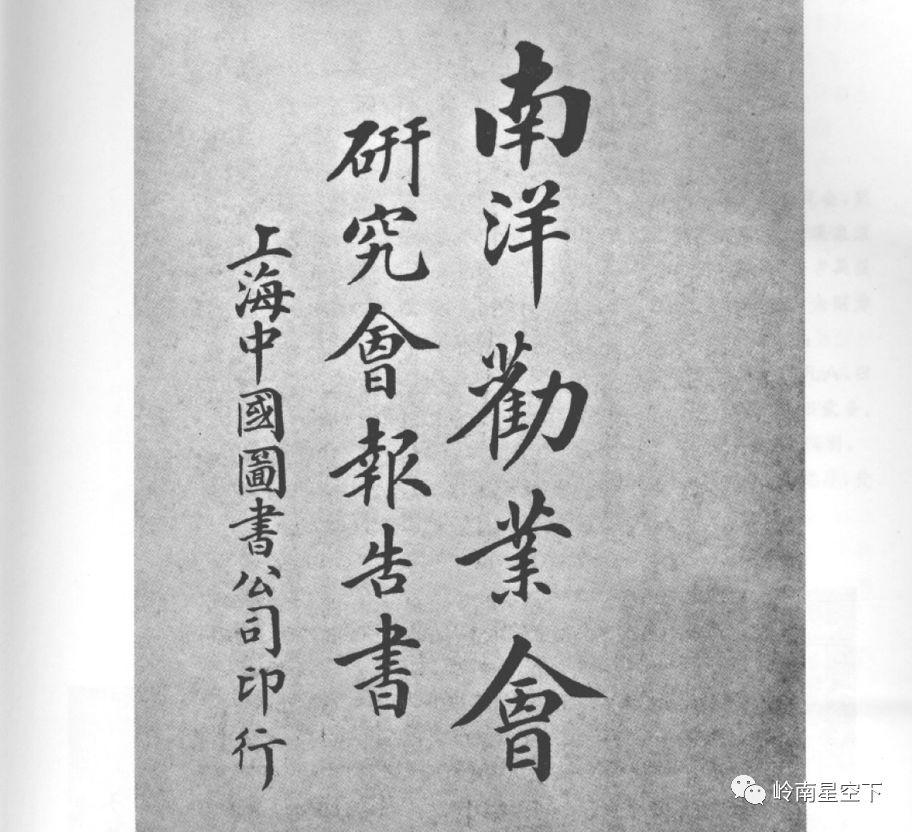 南洋勸業會
研究會報告書
上海中國圖書公司印行
岭南星空下